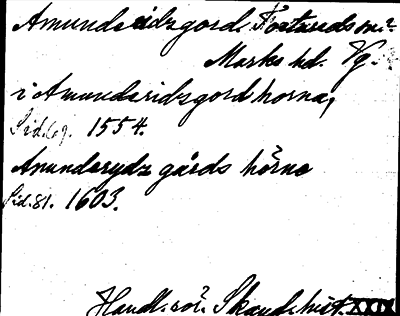 Amunderidzgord. Toetareds sn?
Marks hd. Vg.
i Amunderidzgord horna,
Sid. 69. 1554.
Anunderydz gårds hörne
Sid. 81. 1603.
Handl. rör. Skand. hist. XXIX